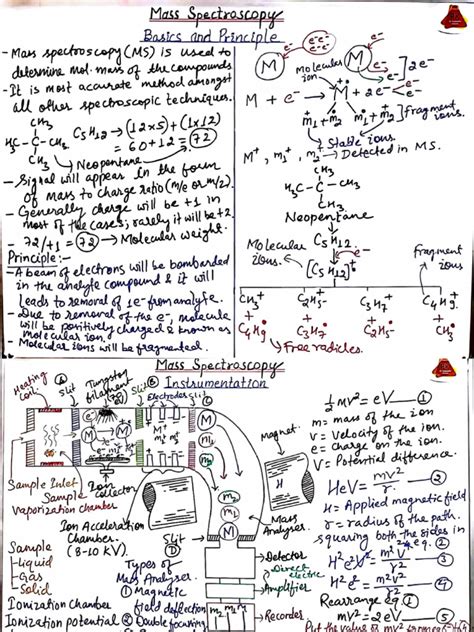 Mass Spectroscopy
Basics and Principle
- Mass spectroscopy (MS) is used to
determine mol. mass of the compounds
- It is most accurate method amongst
all other spectroscopic techniques.
CH3
H3C-C-CH3
CH3
Neopentane
C5H12 → (12x5) + (1x12)
= 60+12 = 72
- Signal will appear in the form
of Mass to charge ratio (m/e or m/z).
- Generally charge will be +1 in
most of the cases, rarely it will be +2.
- 72/+1 = 72 → Molecular weight.
Principle:-
- A beam of electrons will be bombarded
in the analyte compound & it will
leads to removal of 1e- from analyte.
- Due to removal of the e-, molecule
will be positively charged & known as
molecular ion.
- Molecular ions will be fragmented.
e-
M
Molecular
ion
e-
M
e-
e-
] 2e-
M + e- → M+• + 2e-
m1+ + m2•
m1• + m2+
Fragment
ions.
Stable ions.
M+, m1+, m2+ → Detected in MS.
CH3
H3C-C-CH3
CH3
Neopentane
C5H12
e-
Molecular
ions.
[C5H12]+•
fragment
ions
CH3+
C2H5+
C3H7+
C4H9+
+
+
+
+
C4H9•
C3H7•
C2H5•
CH3•
Free radicles.
Mass Spectroscopy
Instrumentation
Heating
Coil
Slit
Tungsten
filament
Slit
Electrodes
Slit
Magnet
H
Sample Inlet
Sample
Vaporization chamber
Ion
Collector
Ion Acceleration
Chamber.
(8-10 KV).
Slit
Mass
Analyser.
Sample
-Liquid
-Gas
-Solid
Types of
Mass Analyser.
① Magnetic
field deflection
② Double focusing
Ionization Chamber
Ionization potential
Detector
Direct
electric
Amplifier
Recorder
½ mv² = eV — ①
m = mass of the ion
V = Velocity of the ion.
e = charge on the ion.
V = Potential difference.
HeV = mv²/r — ②
H = Applied magnetic field
r = radius of the path.
squaring both the sides in
eq. ②
Rearrange eq. ①
mv² = 2eV — ⑤
Put the value of mv² from eq.